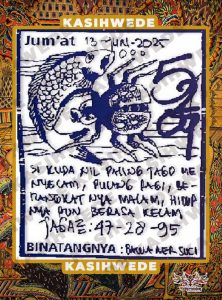 KASIHWEDE
Jum'at 13-JUNI-2025
SI KUDA NIL PALING JAGO ME
NYELAM, PULANG PAGI, BE-
RANGKAT NYA MALAM, HIDUP
NYA PUN BERASA KELAM
JAGA2: 47-28-95
BINATANGNYA :
KASIHWEDE